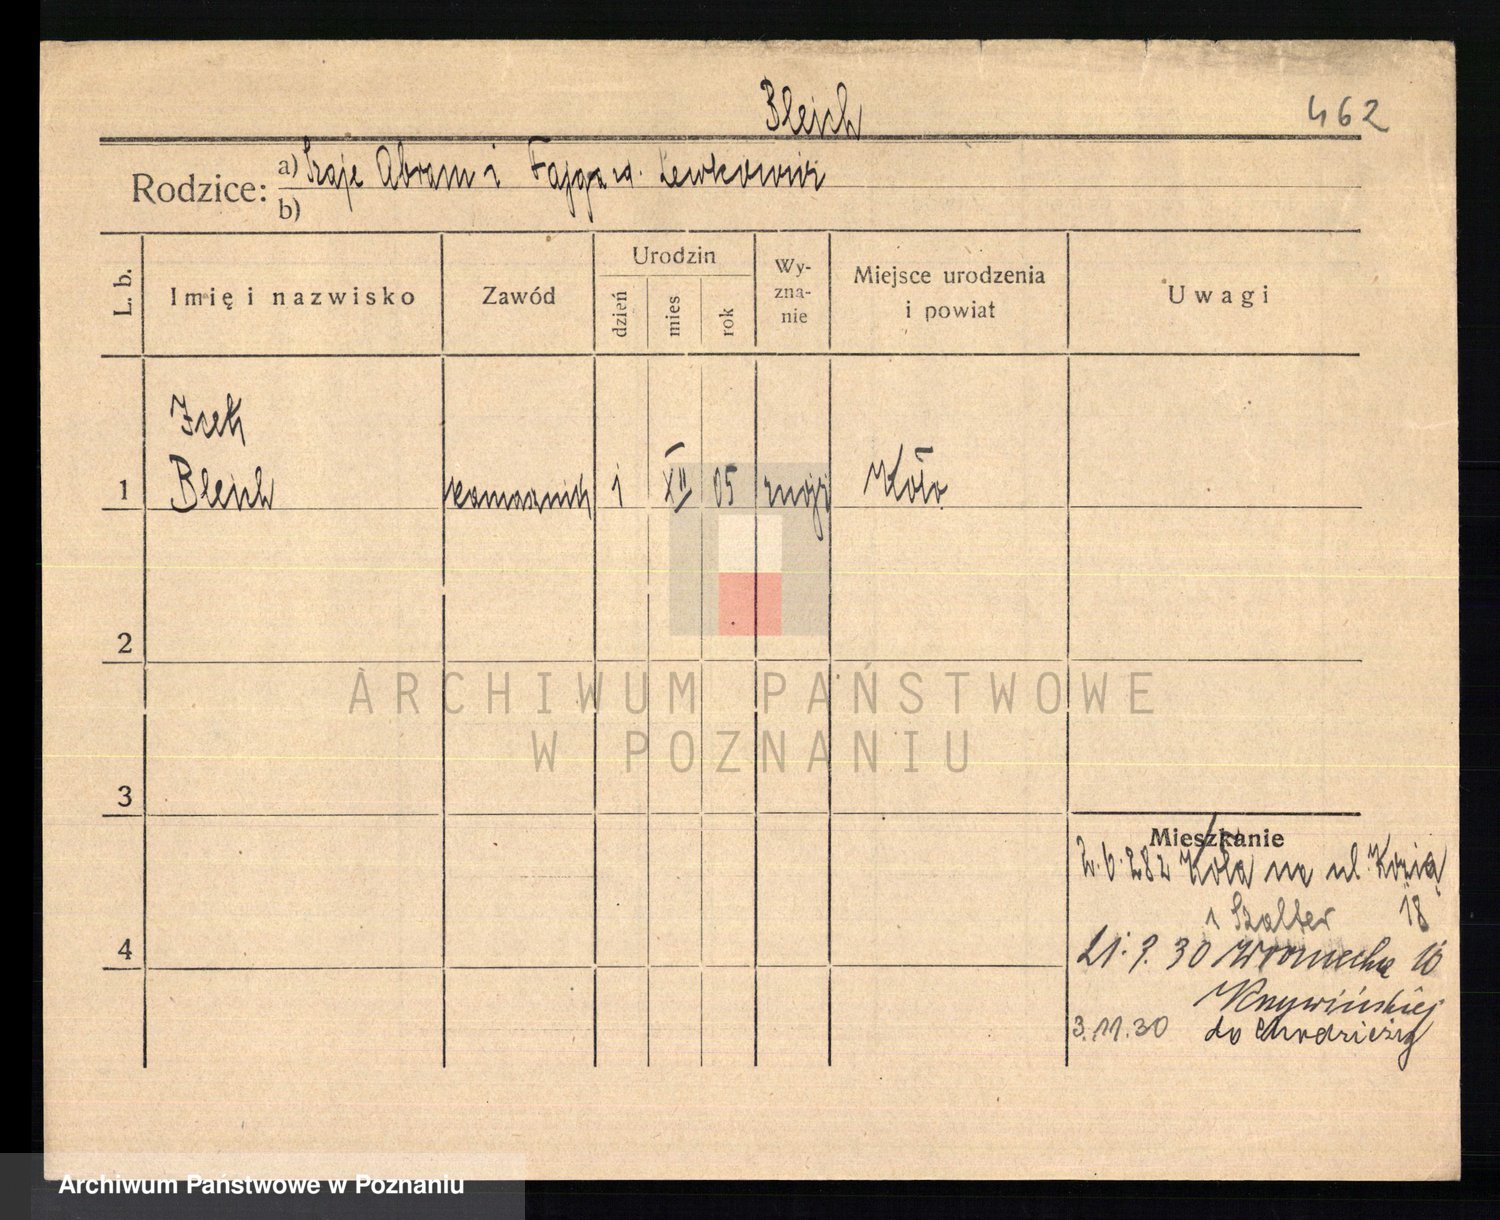 Bleich
462
Rodzice: a) Szaje Abram i Fajga vd. Lewkowicz
b)
L. b.
Imię i nazwisko
Zawód
Urodzin
dzień
mies
rok
Wy-
zna-
nie
Miejsce urodzenia
i powiat
Uwagi
Icek
1 Bleich kamasznik 1 XII 05 mojż Koło
2
ARCHIWUM PAŃSTWOWE
W POZNANIU
3
Mieszkanie
2.6.28 z Koła na ul. Kozią
18
i Szalter
4
21.9.30 Wroniecka 10
3.11.30 do Chodzieży
Archiwum Państwowe w Poznaniu